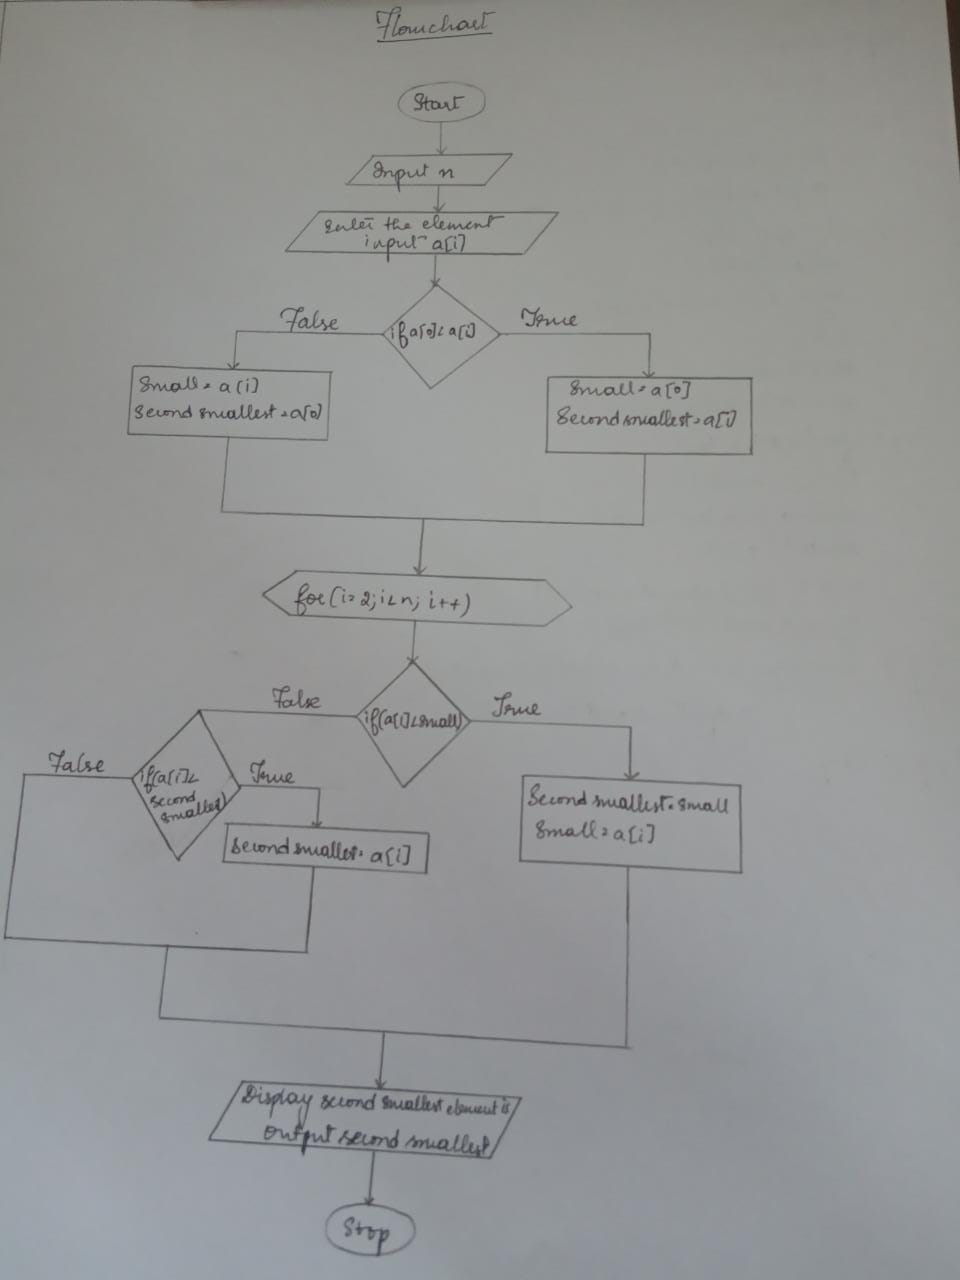 Flowchart
Start
Input n
Enter the element
input a[i]
if a[0]<a[i]
False
True
Small = a[i]
Second smallest = a[0]
Small = a[0]
Second smallest = a[1]
for(i=2; i<n; i++)
if(a[i]<small)
False
True
if(a[i]<
second
smallest)
False
True
Second smallest = a[i]
Second smallest = Small
Small = a[i]
Display second smallest element is
Output second smallest
Stop